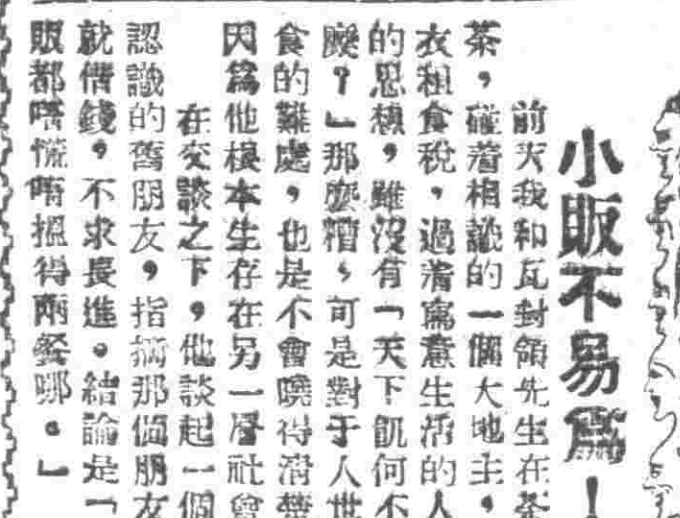 小販不易為！
前天我和瓦封領先生在茶
茶，碰着相識的一個大地主，
衣租食稅，過着寫意生活的人
的思想，雖沒有「天下飢何不
麼？」那麼糟，可是對于人世
食的難處，也是不會曉得清楚
因為他根本生存在另一層社會
在交談之下，他談起一個
認識的舊朋友，指摘那個朋友
就借錢，不求長進。結論是「
販都嗜慌唔搵得兩餐哪。」